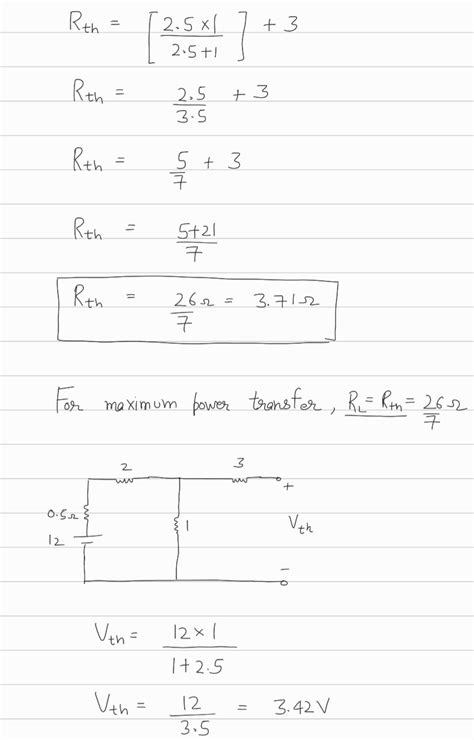 R_th = [ 2.5×1 / 2.5+1 ] + 3
R_th = 2.5 / 3.5 + 3
R_th = 5 / 7 + 3
R_th = 5+21 / 7
R_th = 26 / 7 Ω = 3.71Ω
For maximum power transfer, R_L = R_th = 26 / 7 Ω
2 3
+
0.5Ω 1 V_th
12
−
V_th = 12×1 / 1+2.5
V_th = 12 / 3.5 = 3.42V